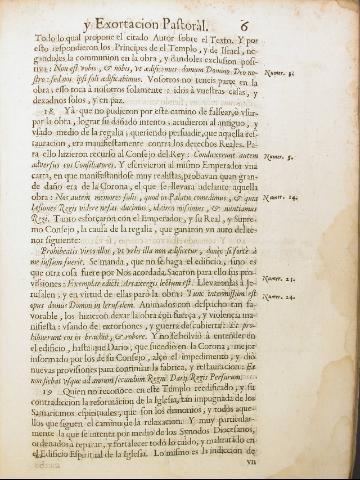 y Exortacion Pastoral. 6
Todo lo qual propone el citado Autor sobre el Texto. Y por
esto respondieron los Principes de el Templo, y de Israel, ne-
gandoles la communion en la obra, y dandoles exclusion posi-
tiva: Non est vobis, & nobis, ut ædificemus domum Domino Deo no-
stro: sed nos ipsi soli ædificabimus. Vosotros no teneis parte en la
obra; esso toca à nosotros solamente: idos à vuestras casas, y
dexadnos solos, y en paz.
Numer. 3.
18. Yà que no pudieron por este camino de falsear, ò viciar
por la obra, lograr su dañado intento; acudieron al antiguo, y
usado medio de la regalia; queriendo persuadir, que aquella res-
tauracion, era manifiestamente contra los derechos Reales. Pa-
ra ello hizieron recurso al Consejo del Rey: Conduxerunt autem
adversus eos Consiliatores. Y escrivieron al mismo Emperador una
carta, en que manifestandose muy realistas, probaban quan gran-
de daño era de la Corona, el que se llevara adelante aquella
obra: Nos autem memores salis, quod in Palatio comedimus, & quia
læsiones Regis videre nefas ducimus, idcirco misimus, & nuntiavimus
Regi. Tanto esforçaron con el Emperador, y su Real, y Supre-
mo Consejo, la causa de la regalia, que ganaron un auto del te-
nor siguiente:
Numer. 5.
Numer. 14.
Prohibeatis viros illos, ut urbs illa non ædificetur, donec si forte à
me iussum fuerit. Se manda, que no se haga el edificio, sino es
que otra cosa fuere por Nos acordada. Sacaron para ello sus pro-
visiones: Exemplar edicti Artaxerxis lectum est. Llevaronlas à Je-
rusalen, y en virtud de ellas parò la obra: Tunc intermissum est
opus domus Domini in Jerusalem. Animados con despacho tan fa-
vorable, los hizieron dexar la obra con fuerça, y violencia ma-
nifiesta: usando de extorsiones, y guerra descubierta: Et pro-
hibuerunt eos in brachio, & robore. Y no se bolviò à entender en
el edificio, hasta que Dario, que sucediò en la Corona, mejor
informado por los de su Consejo, alçò el impedimento, y diò
nuevas provisiones para continuar la fabrica, y restauracion: Et
non fiebat usque ad annum secundum Regni Darij Regis Persarum.
Numer. 21.
Numer. 24.
19 Quien no reconoce en este Templo reedificado, y su
contradicion la reformacion de la Iglesia, tan impugnada de los
Samaritanos espirituales, que son los demonios, y todos aque-
llos que siguen el camino de la relaxacion. Y muy particular-
mente la que se intenta por medio de los Synodos Diocesanos,
ordenados à reparar, y fortalecer todo lo caido, y maltratado en
el Edificio Espiritual de la Iglesia. Lo mismo es la indiccion de
un